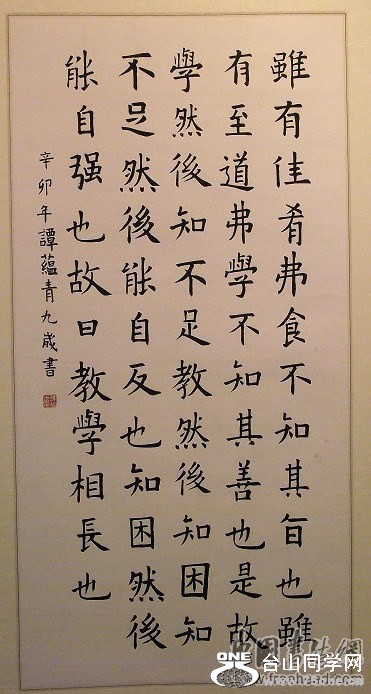 雖有佳肴弗食不知其旨也雖
有至道弗學不知其善也是故
學然後知不足教然後知困知
不足然後能自反也知困然後
能自强也故曰教學相長也
辛卯年譚蘊青九歲書
ONE
台山同学网